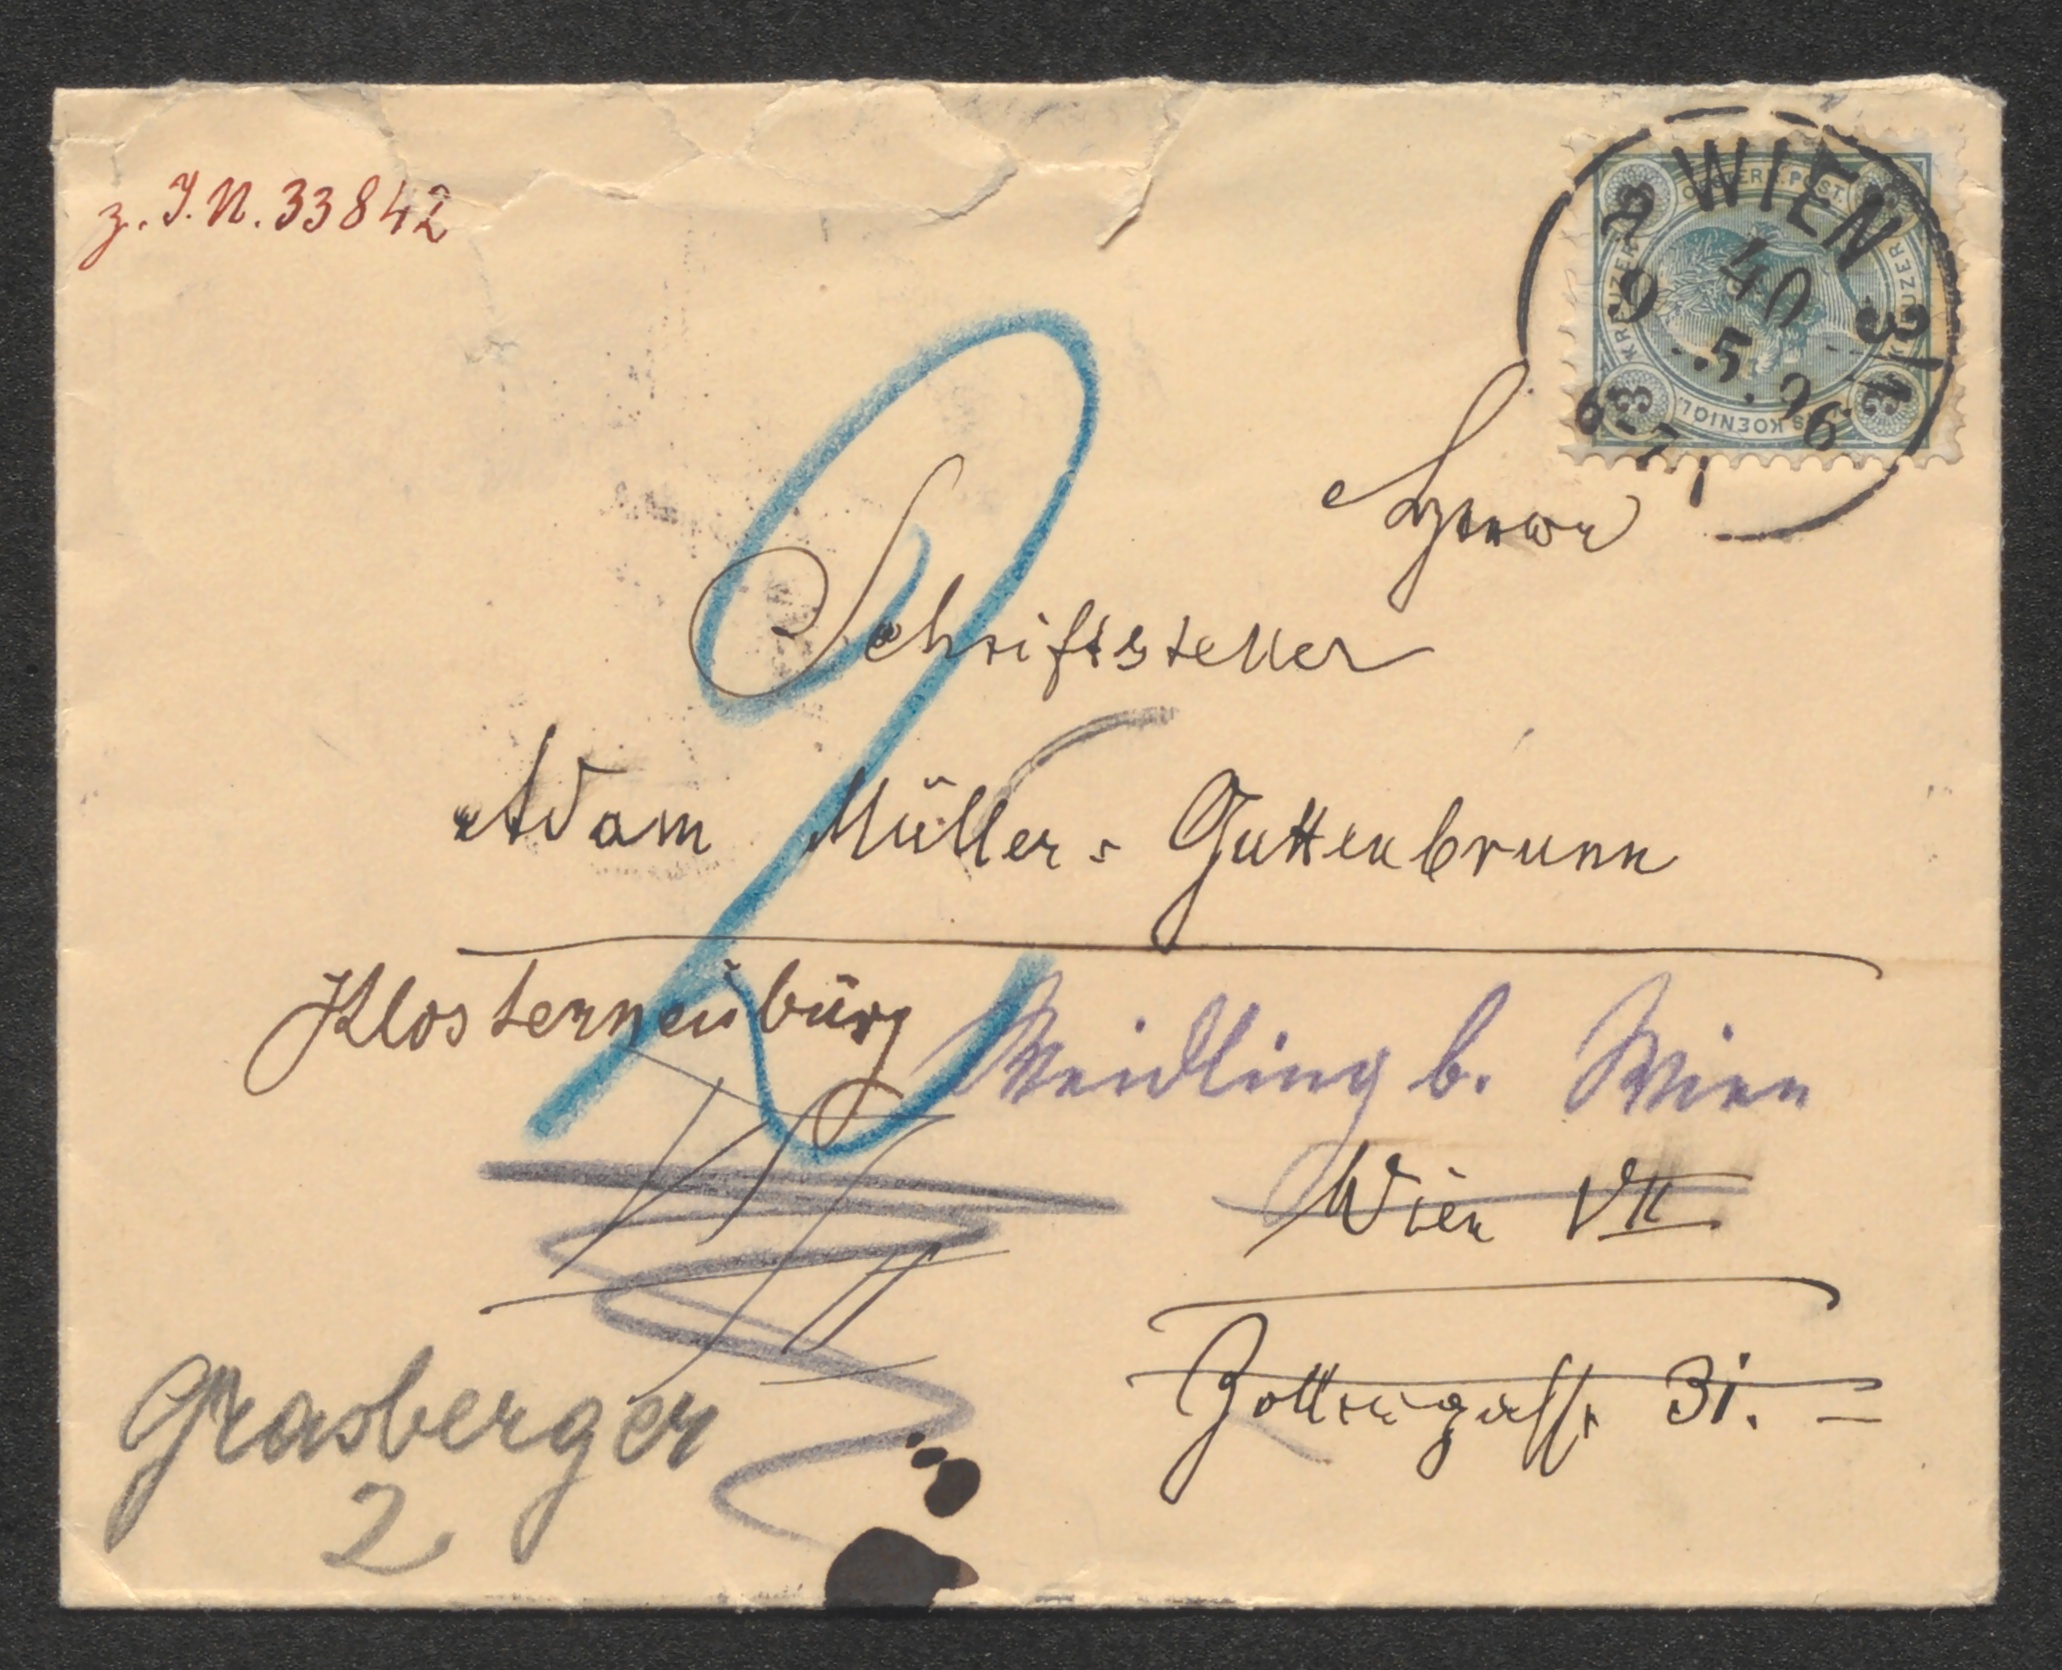 z. I. N. 33842
WIEN
40
5 . 96
6-7
OESTERR. POST.
KREUZER
KREUZER
3
3
Schriftsteller
Adam Müller-Guttenbrunn
Klosterneuburg Weidling b. Wien
Wien VII
Zollergasse 31. =
Grasberger
2